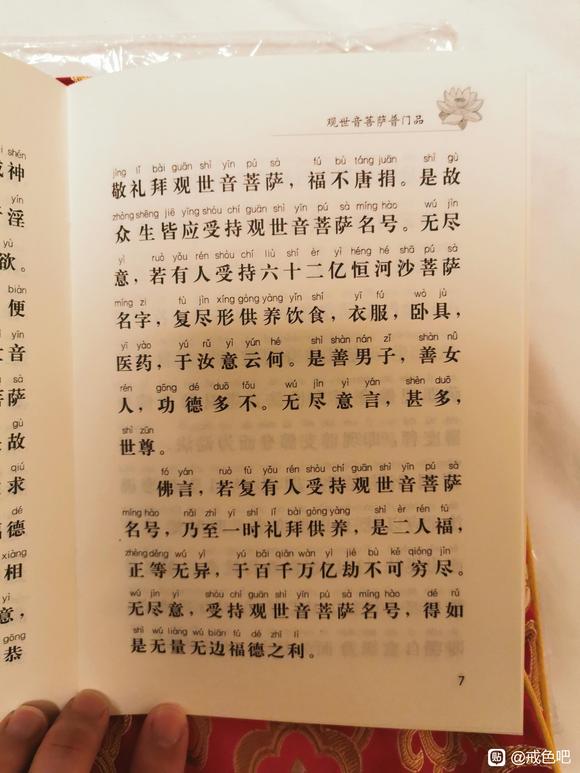 观世音菩萨普门品
jìng lǐ bài guān shì yīn pú sà fú bù táng juān shì gù
敬礼拜观世音菩萨，福不唐捐。是故
zhòng shēng jiē yīng shòu chí guān shì yīn pú sà míng hào wú jìn
众生皆应受持观世音菩萨名号。无尽
yì ruò yǒu rén shòu chí liù shí èr yì héng hé shā pú sà
意，若有人受持六十二亿恒河沙菩萨
míng zì fù jìn xíng gòng yàng yǐn shí yī fú wò jù
名字，复尽形供养饮食，衣服，卧具，
yī yào yú rǔ yì yún hé shì shàn nán zǐ shàn nǚ
医药，于汝意云何。是善男子，善女
rén gōng dé duō fǒu wú jìn yì yán shèn duō
人，功德多不。无尽意言，甚多，
shì zūn
世尊。
fó yán ruò fù yǒu rén shòu chí guān shì yīn pú sà
佛言，若复有人受持观世音菩萨
míng hào nǎi zhì yì shí lǐ bài gòng yàng shì èr rén fú
名号，乃至一时礼拜供养，是二人福，
zhèng děng wú yì yú bǎi qiān wàn yì jié bù kě qióng jìn
正等无异，于百千万亿劫不可穷尽。
wú jìn yì shòu chí guān shì yīn pú sà míng hào dé rú
无尽意，受持观世音菩萨名号，得如
shì wú liàng wú biān fú dé zhī lì
是无量无边福德之利。
7
shén
神
yín
淫
yù
欲。
biàn
便
yīn
音
sà
萨
gù
故
qiú
求
dé
德
xiàng
相
yì
意，
gōng
恭
贴 @戒色吧